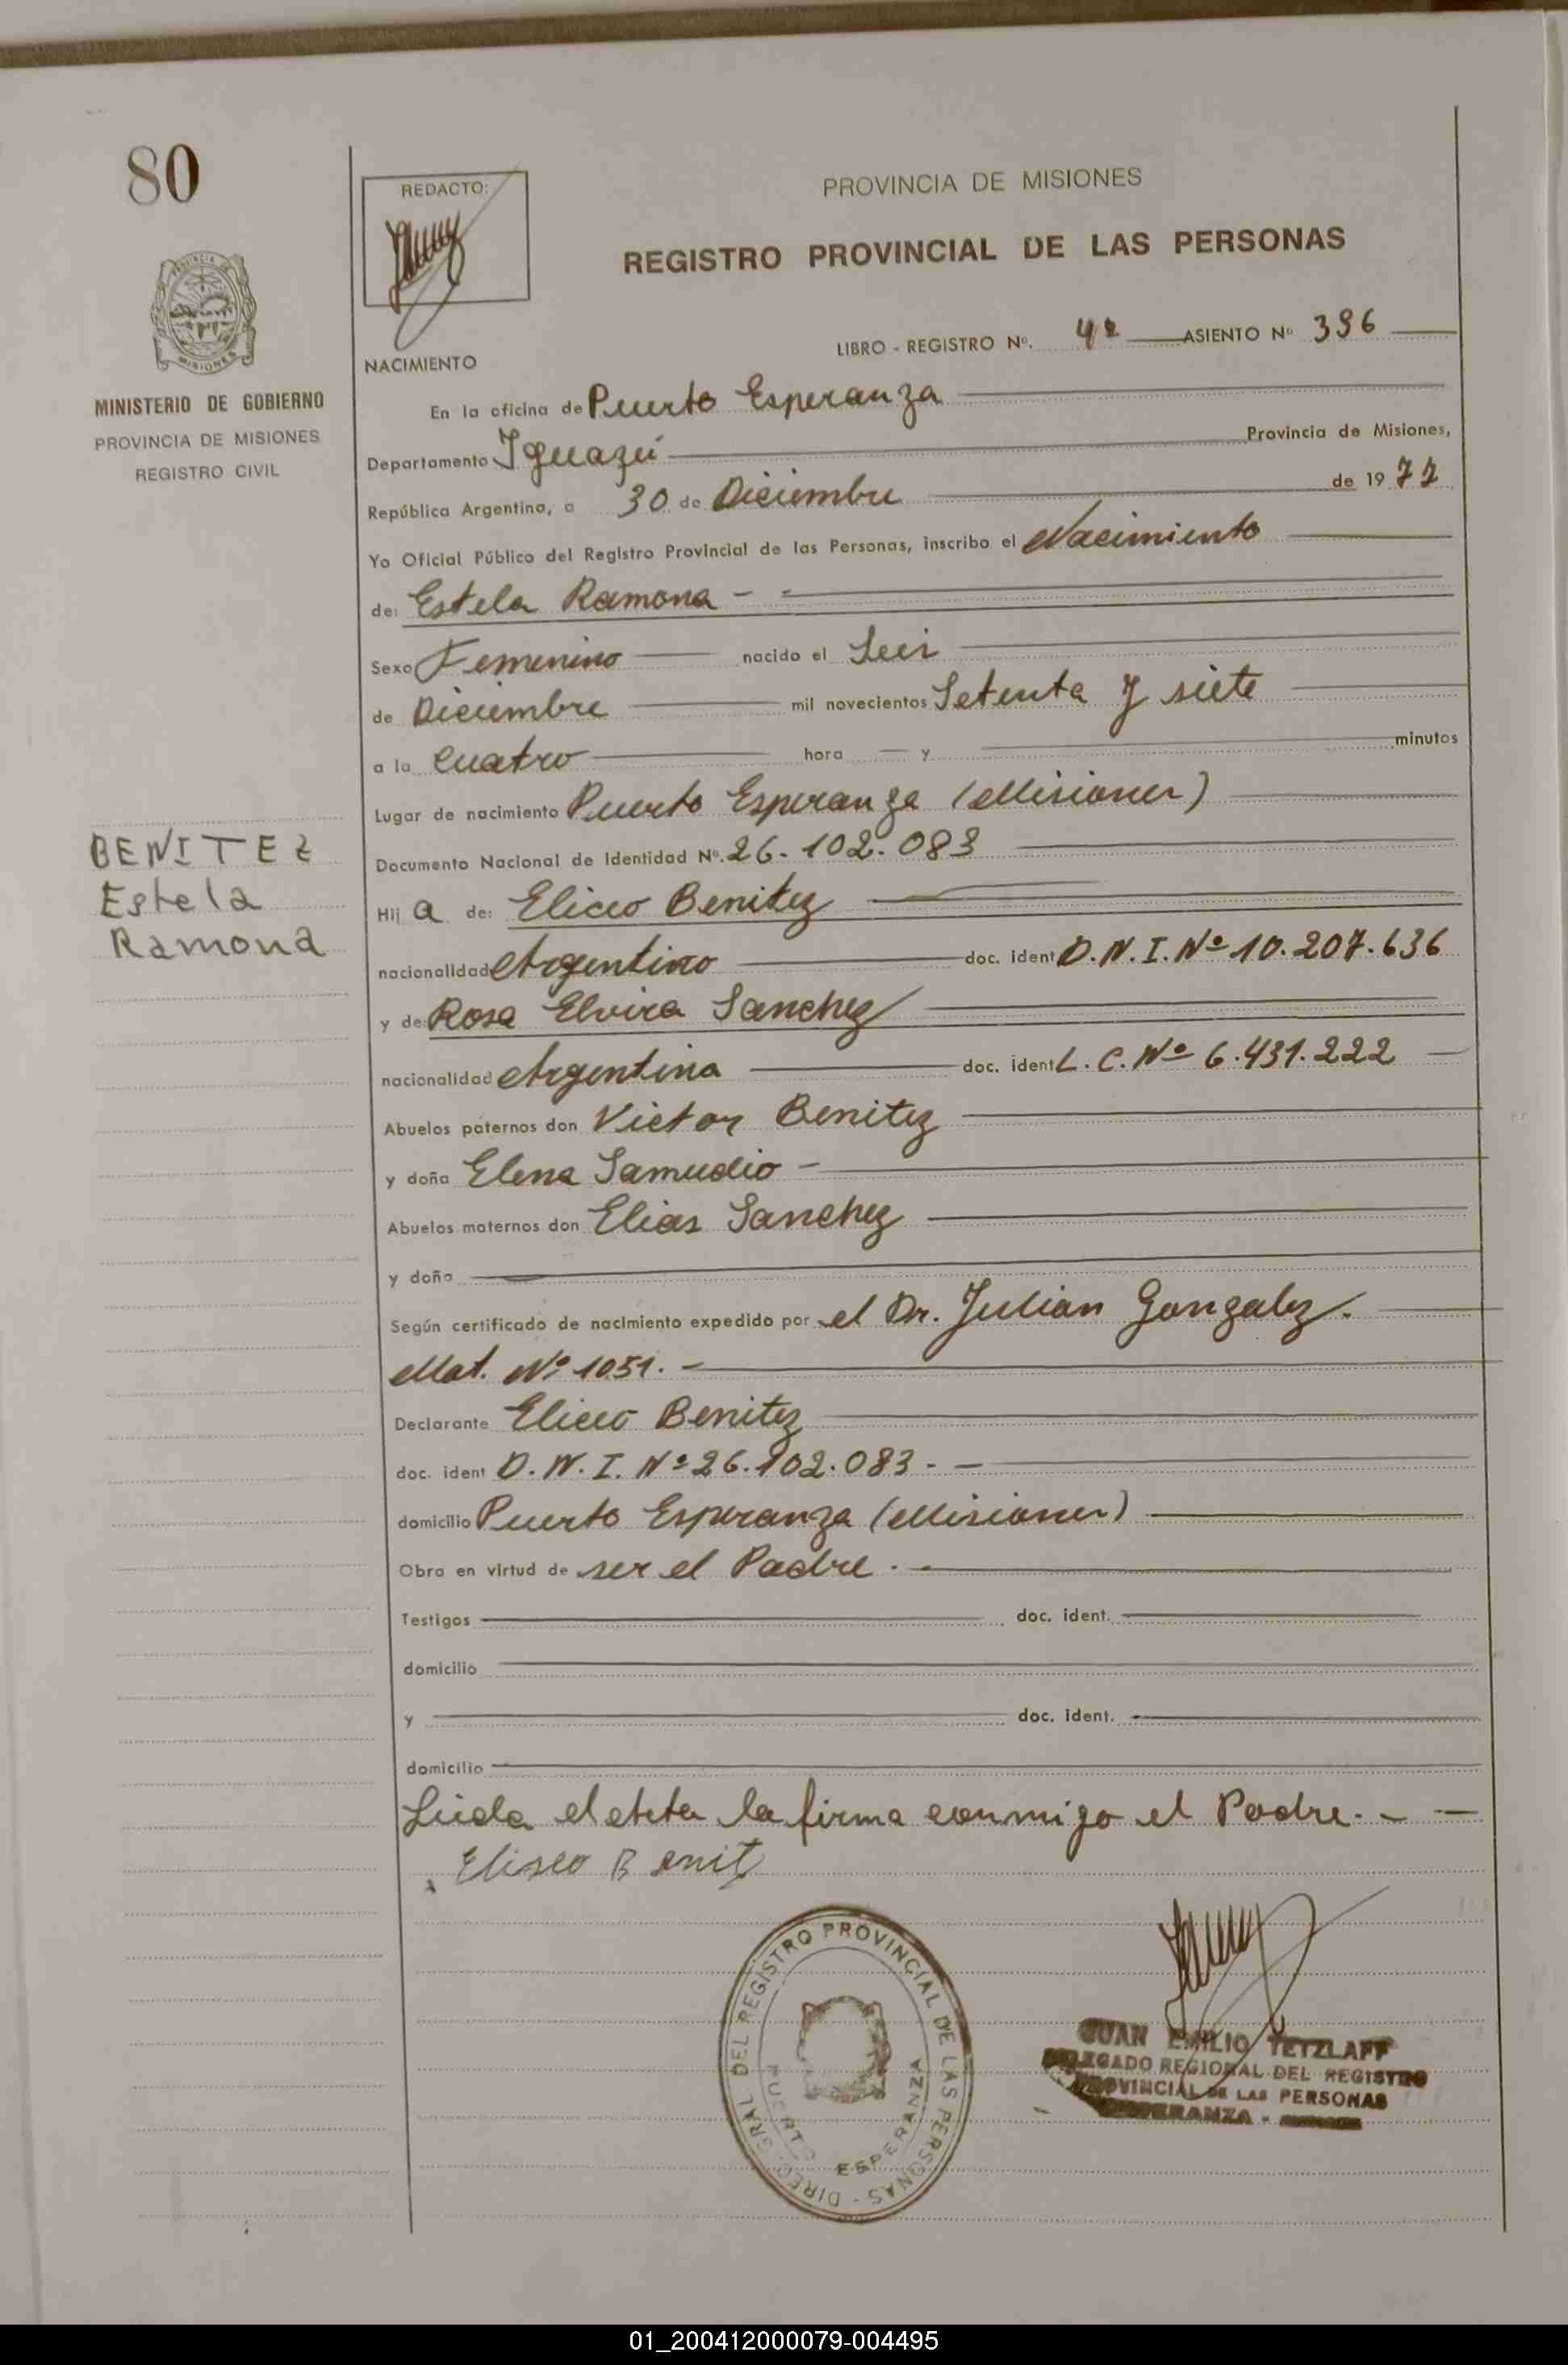 80
REDACTO:
PROVINCIA DE MISIONES
REGISTRO PROVINCIAL DE LAS PERSONAS
MINISTERIO DE GOBIERNO
PROVINCIA DE MISIONES
REGISTRO CIVIL
NACIMIENTO
LIBRO - REGISTRO Nº. 42 ASIENTO Nº 396
En la oficina de Puerto Esperanza
Departamento Iguazú Provincia de Misiones,
República Argentina, a 30 de Diciembre de 1977
Yo Oficial Público del Registro Provincial de las Personas, inscribo el Nacimiento
de: Estela Ramona -
Sexo Femenino nacido el Seis
de Diciembre mil novecientos Setenta y siete
a la cuatro hora — y minutos
Lugar de nacimiento Puerto Esperanza (Misiones)
Documento Nacional de Identidad Nº. 26.102.083
BENITEZ
Estela
Ramona
Hij a de: Eliceo Benitez
nacionalidad Argentino doc. ident D.N.I. Nº 10.207.636
y de: Rosa Elvira Sanchez
nacionalidad Argentina doc. ident L.C. Nº 6.431.222
Abuelos paternos don Victor Benitez
y doña Elena Samudio -
Abuelos maternos don Elias Sanchez
y doña
Según certificado de nacimiento expedido por el Dr. Julian Gonzalez.
Mat. Nº 1051. -
Declarante Eliceo Benitez
doc. ident D.N.I. Nº 26.102.083 -
domicilio Puerto Esperanza (Misiones)
Obra en virtud de ser el Padre. -
Testigos doc. ident.
domicilio
y doc. ident.
domicilio
Leida el Acta la firma conmigo el Padre. -
Eliseo Benit
DIREC. GRAL DEL REGISTRO PROVINCIAL DE LAS PERSONAS -
PUERTO ESPERANZA
JUAN EMILIO TETZLAFF
DELEGADO REGIONAL DEL REGISTRO
PROVINCIAL DE LAS PERSONAS
ESPERANZA -
01_200412000079-004495